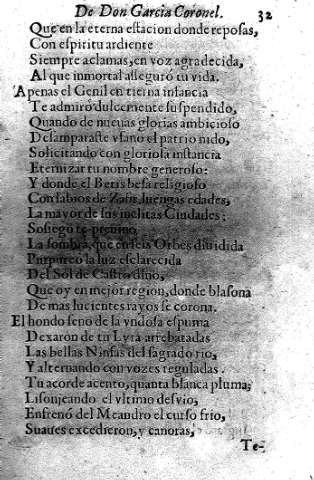 De Don Garcia Coronel. 32
Que en la eterna estacion donde reposas,
Con espiritu ardiente
Siempre aclamas, en voz agradecida,
Al que inmortal asseguró tu vida.
Apenas el Genil en tierna infancia
Te admiró dulcemente suspendido,
Quando de nueuas glorias ambicioso
Desamparaste vfano el patrio nido,
Solicitando con gloriosa instancia
Eternizar tu nombre generoso:
Y donde el Betis besa religioso
Con labios de luengas edades,
La mayor de sus inclitas Ciudades:
Sossegó te
La sombra, que en seis Orbes diuidida
Purpureó la luz esclarecida
Del Sol de Castro diuo,
Que oy en mejor region, donde blasona
De mas lucientes rayos se corona.
El hondo seno de la vndosa espuma
Dexaron de tu Lyra arrebatadas
Las bellas Ninfas del sagrado rio,
Y alternando con vozes reguladas
Tu acorde acento, quanta blanca pluma,
Lisonjeando el vltimo desvio,
Enfrenó del Meandro el curso frio,
Suaues excedieron, y canoras,
Te-